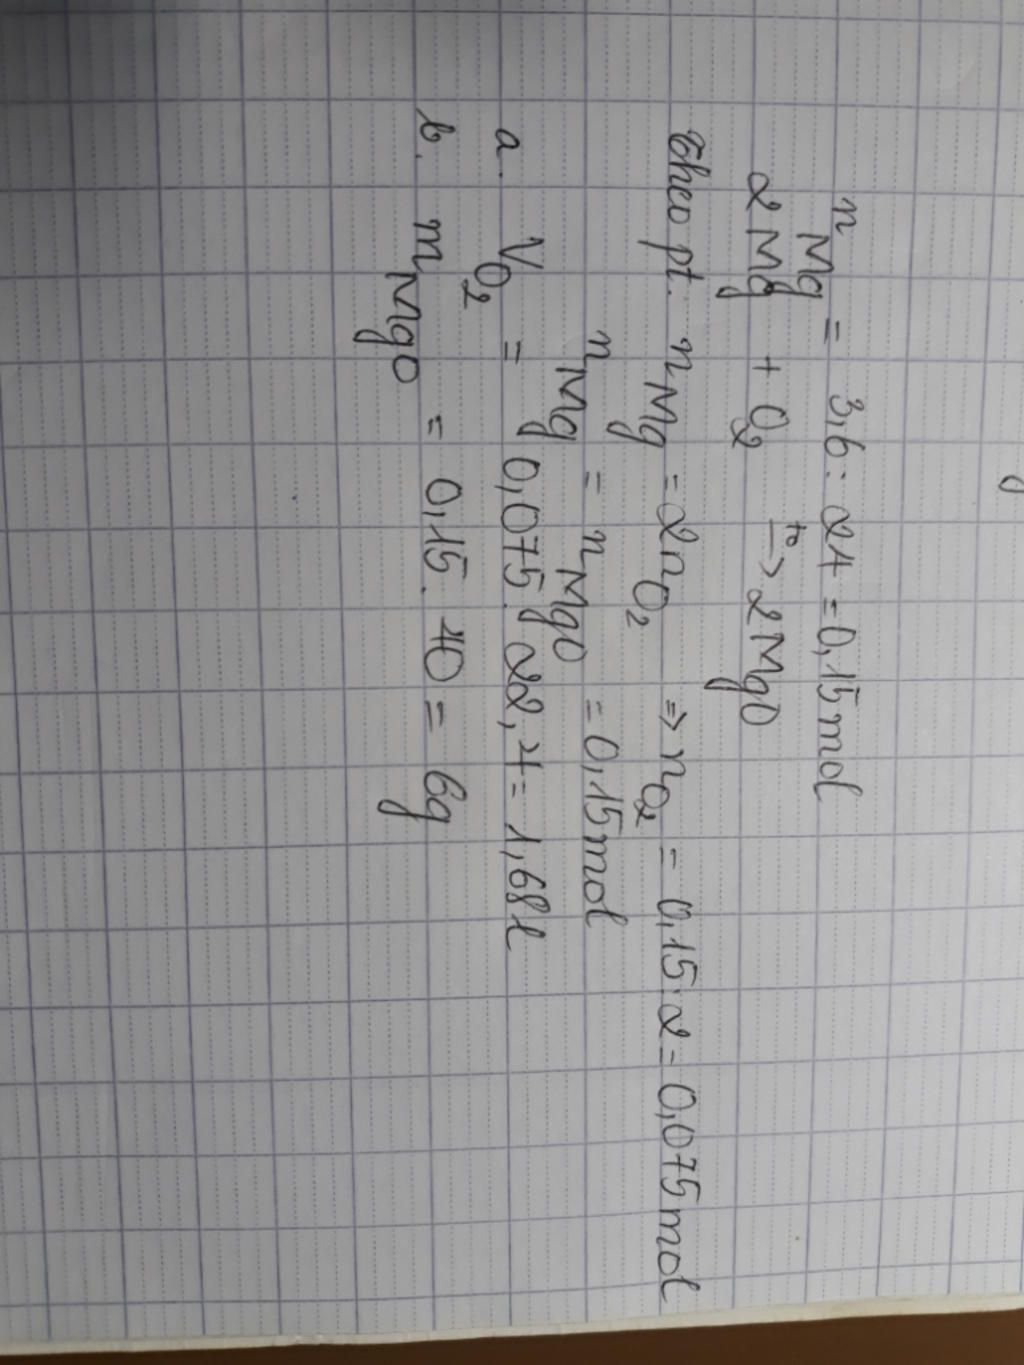 nMg = 3,6 : 24 = 0,15 mol
2Mg + O2 t0→ 2MgO
Theo pt. nMg = 2nO2 => nO2 = 0,15 : 2 = 0,075 mol
nMg = nMgO = 0,15 mol
a. VO2 = 0,075 . 22,4 = 1,68 l
b. mMgO = 0,15 . 40 = 6g